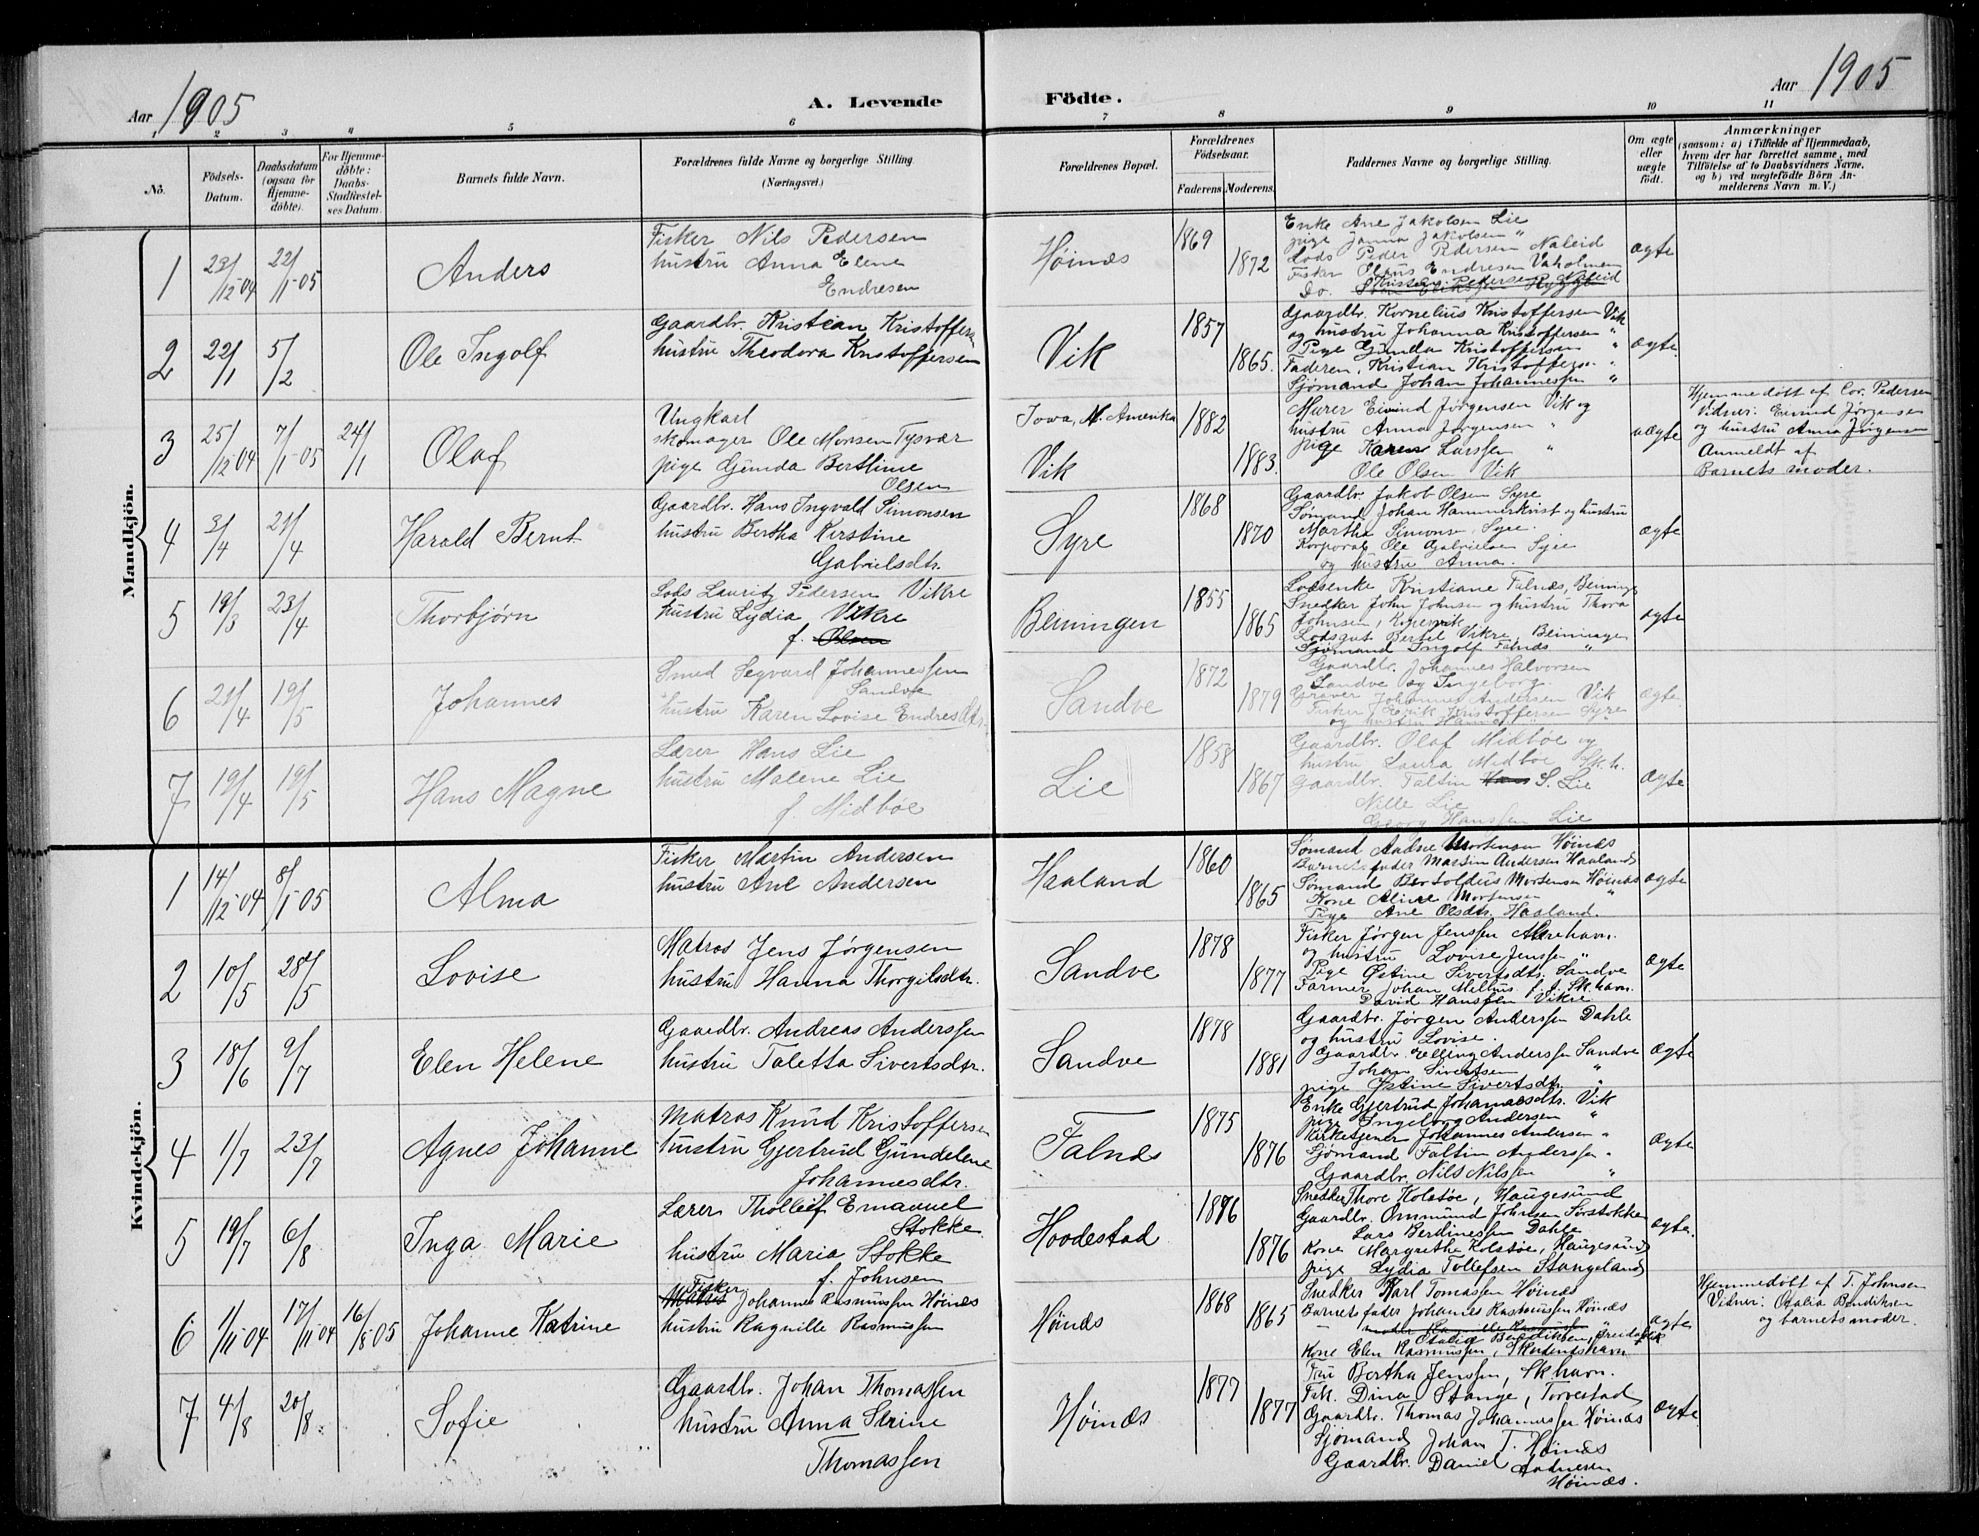 Aar 1905
A. Levende
Födte.
Aar 1905
1 2 3 4 5 6 7 8 9 10 11
No.
Födsels-Datum.
Daabsdatum (ogsaa for Hjemme-döbte).
For Hjemme-döbte: Daabs-Stadfæstel-ses Datum.
Barnets fulde Navn.
Forældrenes fulde Navne og borgerlige Stilling.
(Næringsvei.)
Forældrenes Bopæl.
Forældrenes Födselsaar.
Faderens. Moderens.
Faddernes Navne og borgerlige Stilling.
Om ægte eller uægte født.
Anmærkninger
(saasom: a) i Tilfælde af Hjemmedaab, hvem der har forrettet samme, med Tilföielse af to Daabsvidners Navne, og b) ved uægtefödte Börn An-melderens Navn m. V.)
Mandkjön.
1 23/12-04 22/1-05 Anders
Fisker Nils Pedersen
hustru Anna Elene
Endresen
Høinæs 1869 1872
Enke Ane Jakobsen Lie
pige Janna Jakobsen "
Lods Peder Pedersen Naleid
Fisker Olaus Endresen Vaholmen
Do.
ægte
2 22/1 5/2 Ole Ingolf
Gaardbr. Kristian Kristoffersen
hustru Theodora Kristoffersen
Vik 1857 1865.
Gaardbr. Kornelius Kristoffersen Vik
og hustru Johanna Kristoffersen "
Pige Gunda Kristoffersen "
Faderen, Kristian Kristoffersen "
Sjømand Johan Johannessen "
ægte
3 25/12 04 7/1-05 24/1 Olaf
Ungkarl
skomager Ole Monsen Tysvær
pige Gunda Bertline
Olsen
Iowa, N. Amerika
Vik 1882 1883.
Murer Eivind Jørgensen Vik og
hustru Anna Jørgensen "
pige Karen Larssen "
Ole Olsen Vik
uægte
Hjemmedøbt af Cor. Pedersen
Vidner: Eivind Jørgensen
og hustru Anna Jørgensen
Anmeldt af
Barnets moder.
4 3/4 21/4 Harald Bernt
Gaardbr. Hans Ingvald Simonsen
hustru Bertha Kirstine
Gabrielsdtr.
Syre 1868 1870
Gaardbr. Jakob Olsen Syre
Sømand Johan Hammerkvist og hustru
Martha Simons. Syre.
Korporal Ole Gabrielsen Syre
og hustru Anna.
ægte
5 19/3 23/4 Thorbjørn
Lods Lauritz Pedersen Vikre
hustru Lydia Vikre
f. Olsen
Beiningen 1855 1865
Lodsenke Kristiane Falnæs, Beininge
Snedker John Johnsen og hustru Thora
Johnsen, Kopervik
Lodsgut Bertel Vikre, Beiningen
Sjømand Ingolf Falnæs "
ægte
6 21/4 19/5 Johannes
Smed Segvard Johannessen
Sandve
hustru Karen Lovise Endresdtr.
Sandve 1872 1879
Gaardbr. Johannes Halvorsen
Sandve og Ingeborg.
Graver Johannes Andersen Vik
Fisker Erik Kristoffersen Syre
og hustru
ægte
7 19/4 19/5 Hans Magne
Lærer Hans Lie
hustru Malene Lie
f. Midbøe
Lie 1858 1867
Gaardbr. Olaf Midbøe og
hustru Laura Midbøe Sk.h.
Gaardbr. Faltin Hans S. Lie
Nille Lie
Georg Hanssen Lie
ægte
Kvindekjön.
1 14/12-04 8/1-05 Alma
Fisker Martin Andersen
hustru Ane Andersen
Haaland 1860 1865
Sømand Aadne Mortensen Høinæs
Barnets fader Martin Andersen Haaland
Sømand Bertoldus Mortensen Høinæs
Kone Aline Mortensen "
Pige Ane Olsdtr. Haaland.
ægte
2 10/5 28/5 Lovise
Matros Jens Jørgensen
hustru Hanna Thorgilsdtr.
Sandve 1878 1877
Fisker Jørgen Jenssen Akrehavn.
og hustru Lovise Jenssen "
Pige Østine Sivertsdtr. Sandve
Farmer Johan Melhus f. t. Sk.havn.
David Hanssen Vikre
ægte
3 18/6 9/7 Elen Helene
Gaardbr. Andreas Anderssen
hustru Taletta Sivertsdtr.
Sandve 1878 1881
Gaardbr. Jørgen Anderssen Dahle
og hustru Lovise.
Gaardbr. Elling Anderssen Sandve
Johan Sivertsen "
pige Østine Sivertsdtr. "
ægte
4 1/7 23/7 Agnes Johanne
Matros Knud Kristoffersen
hustru Gjertrud Gundelene
Johannesdtr.
Falnæs 1875 1876
Enke Gjertrud Johannesdtr. Vik
pige Ingeborg Andersen "
Kirketjener Johannes Andersen "
Sjømand Faltin Anderssen "
Gaardbr. Nils Nilsen "
ægte
5 19/7 6/8 Inga Marie
Lærer Tholleif Emanuel
Stokke
hustru Maria Stokke
f. Johnsen
Hovdestad 1876 1876
Snedker Thore Kolstøe, Haugesund
Gaardbr. Ommund Johnsen Sørstokke
Lars Berdinessen Dahle
Kone Margrethe Kolstøe, Haugesund
pige Lydia Tollefsen Stangeland
ægte.
6 1/11 04 17/11-04 16/8 05 Johanne Katrine
Fisker
Matros Johannes Rasmussen Høinæs
hustru Ragnille Rasmussen
Høinæs 1868 1865
Snedker Karl Tomassen Høinæs
Barnets fader Johannes Rasmussen Høinæs
moder Ragnille Rasmussen "
Otalia Bendiksen,
Kone Elen Rasmussen, Skudeneshavn
ægte
Hjemmedøbt af T. Johnsen
Vidner: Otalia Bendiksen
og barnets moder.
7 4/8 20/8 Sofie
Gaardbr. Johan Thomassen
hustru Anna Serine
Thomassen
Høinæs 1877 1877
Fru Bertha Jenssen, Sk.havn.
Frk. Dina Stange, Torvestad
Gaardbr. Thomas Johannessen Høinæs
Sjømand Johan T. Høinæs
Gaardbr. Daniel Aadnesen
Høinæs.
ægte